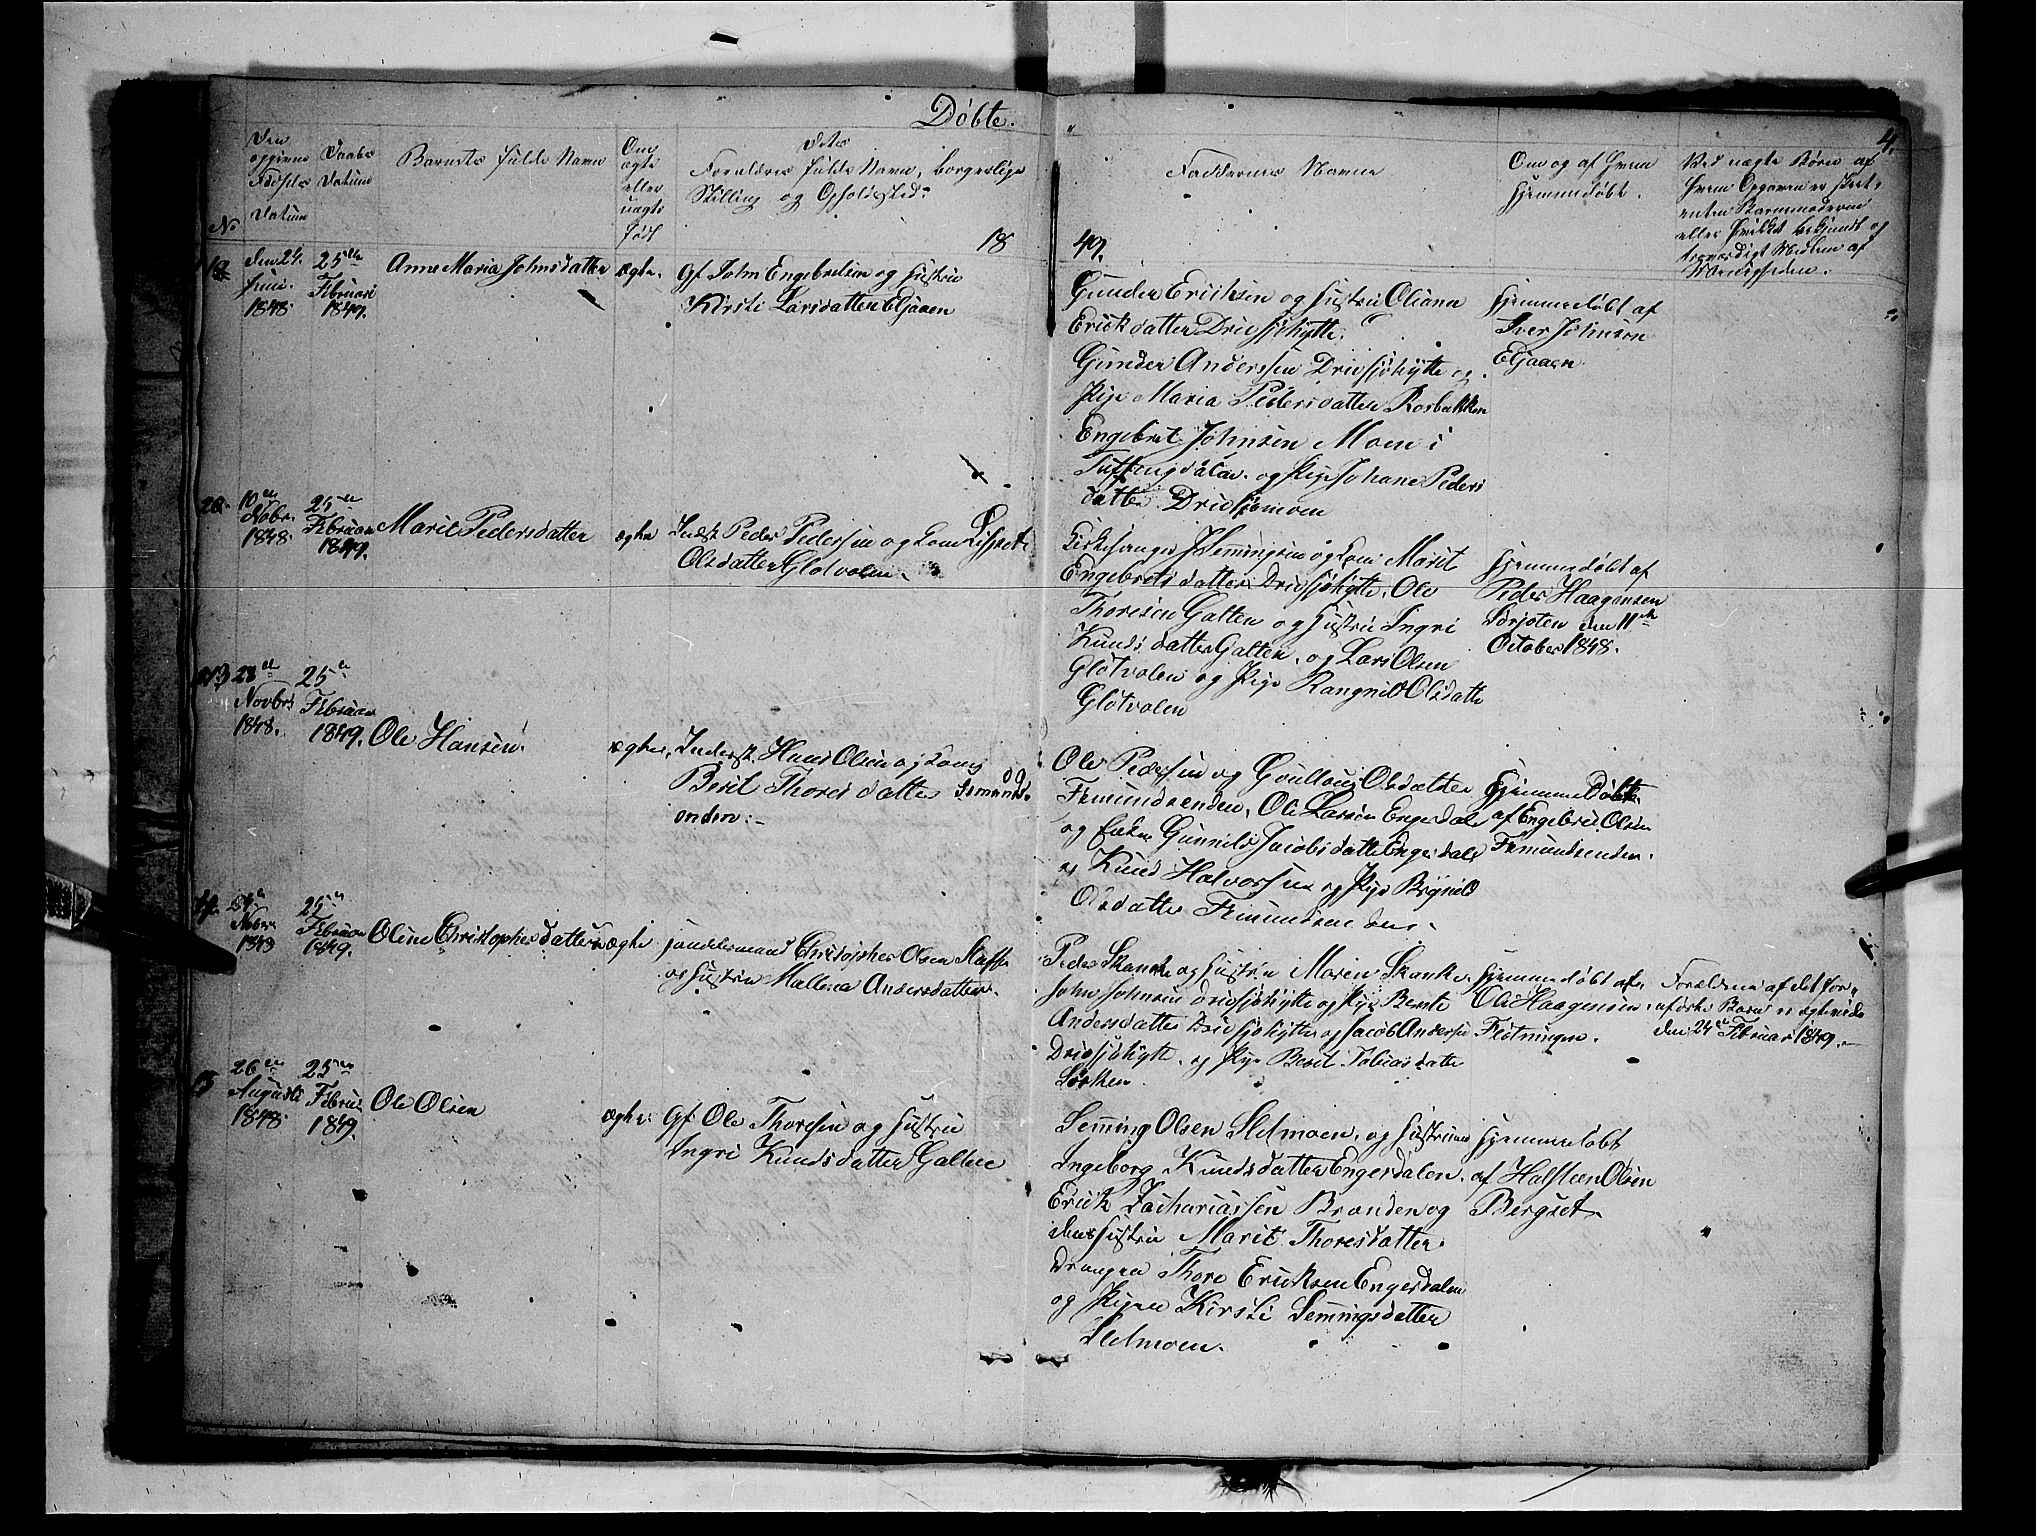 Døbte.
4.
No
Den opgivne Fødsels Datum
Daabs Datum
Barnets fulde Navn
Om ægte eller uægte født
Forældres fulde Navn, borgerlige
Stilling og Opholdsted.
18
49.
Faddernes Navne
Om og af hvem
hjemmedøbt.
Ved uægte Børn af
hvem Opgaven er skeet,
enten Barnemoderen
eller hvilket bekjendt og
troværdigt Medlem af
Menigheden.
den 24.
Juni.
1848.
25de
Februari
1849.
Anne Maria Johnsdatter
ægte.
Gf John Engebretsen og Hustru
Kirsti Larsdatter Elgaaen
Gunder Erichsen og Hustru Oliana
Erickdatter Drevsjøhytte.
Gunder Anderssen Drevsjøhytte og
Pige Maria Pedersdatter Rosbakken
Engebret Johnsen Moen i
Tufsingdalen og Pige Johane Peders
datter Drevsjømoen
Hjemmedøbt af
Iver Johnsen
Elgaaen
20.
10de
Nobr.
1848.
25de
Februar
1849.
Marit Pedersdatter
ægte
Inderst Peder Pedersen og Kone Lisbet
Olsdatter Glotvolen.
Kirkesanger J Hemmingsen og Kone Marit
Engebretsdatter Drevsjøhytte, Ole
Thoresen Galten og Hustru Ingri
Knudsdatter Galten, og Lars Olsen
Glotvolen og Pige Rangnild Olsdatte
Glotvolen
Hjemmedøbt af
Peder Haagensen
Sorjoten den 11te
October 1848.
23de
Novbr
1848.
25de
Februar
1849.
Ole Hansen.
ægte.
Inderst Hans Olsen og Kone
Berit Thoresdatter Femunds-
enden.-
Ole Pedersen og Goullaug Olsdatter
Femundsenden, Ole Larsen Engerdal
og Enken Gunnild Jacobsdatte Engerdal
og Knud Halvorsen og Pige Rognild
Olsdatter Femundsenden.
Hjemmedøbt
af Engebret Olsen
Femundsenden.
14.
24de
Nobr.
1848
25de
Februar
1849.
Oline Christophersdatter
ægte
Handelsmand Christopher Olsen
og Hustru Mallena Andersdatter.
Peder Skancke og Hustru Maren Skanke.
John Johnsen Drevsjøhytte og Pige Berte
Andersdatter Drevsjøhytte og Jacob Andersen
Drevsjøhytte. og Pige Berit Tobiasdatte
Sorken.
Hjemmedøbt af
Ole Haagensen
Flotningen.
Forældrene af det for,,
anførte Barn er ægteviede
den 24de Februar 1849.-
15
26de
Augusti
1848.
25de
Februar
1849.
Ole Olsen
ægte.
Gf. Ole Thoresen og Hustru
Ingri Knudsdatter Galten
Semming Olsen Sletmoen, og Hustruen
Ingeborg Knudsdatter Engerdalen.
Erick Zachariassen Brænden og
dens Hustru Marit Thoresdatter.
Drængen Thore Ericksen Engerdalen
og Pigen Kirsti Semmingsdatter
Sletmoen.
Hjemmedøbt
af Halsteen Olsen
Bergset.